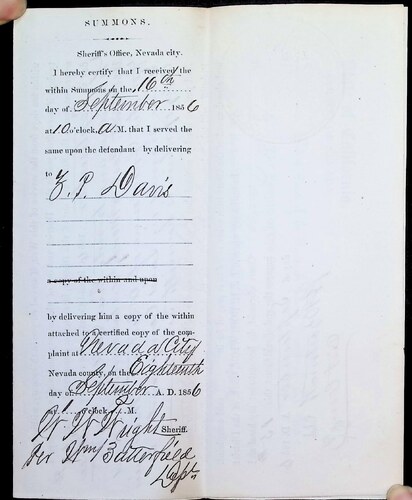 SUMMONS.
Sheriff's Office, Nevada city.
I hereby certify that I received the
within Summons on the 16th
day of September 1856
at 10 o'clock, A M. that I served the
same upon the defendant by delivering
to Z. P. Davis
a copy of the within and upon
by delivering him a copy of the within
attached to a certified copy of the com-
plaint at Nevada City
Nevada county, on the Eighteenth
day of September A. D. 1856
at o'clock P M.
W. W. Wright Sheriff.
Per Wm Butterfield
Dept